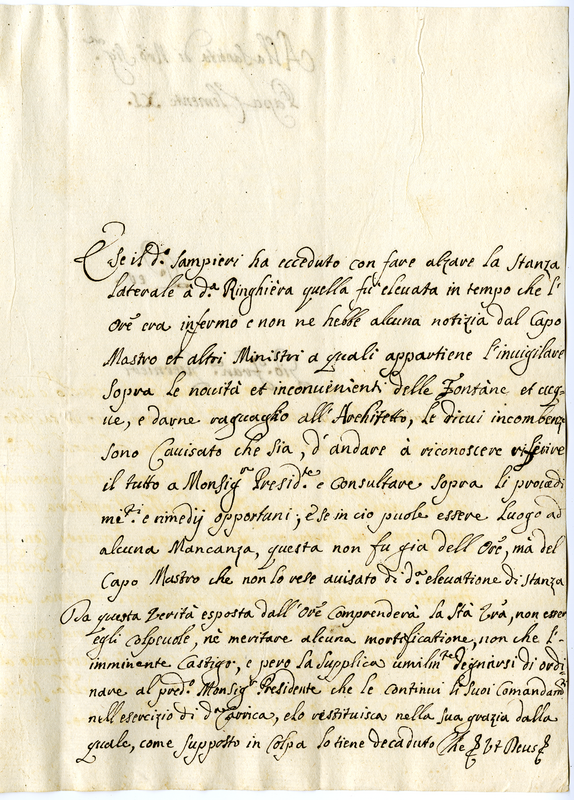 Se il d.º Sampieri ha ecceduto con fare alzare la Stanza
laterale à d.ª Ringhiera quella fu elevata in tempo che l'
Orē era infermo e non ne hebbe alcuna notizia dal Capo
Mastro et altri Ministri a quali appartiene l'inuigilare
sopra le novità et inconuenienti delle Fontane et acq-
ue, e darne raguaglio all'Architetto, le di cui incombenze
sono Cauisato che sia, d'andare à riconoscere riferire
il tutto a Monsig.r Presid.te e consultare sopra li procedi
me.ti e rimedij opportuni, e se in cio puole essere luogo ad
alcuna Mancanza, questa non fu gia dell'Orē, mà del
Capo Mastro che non lo rese auisato di d.ª elevatione di stanza
Da questa Verità esposta dall'Orē comprenderà la Stà Vrā, non esser
egli colpeuole, nè meritare alcuna mortificatione, non che l'
imminente castigo, e pero la supplica umilm.te degnarsi di ordi-
nare al pred.º Monsig.r Presidente che le continui li suoi Comandam.ti
nell'esercizio di d.ª Carrica, e lo restituisca nella sua grazia dalla
quale, come supposto in Colpa lo tiene decaduto Che Ut Deus